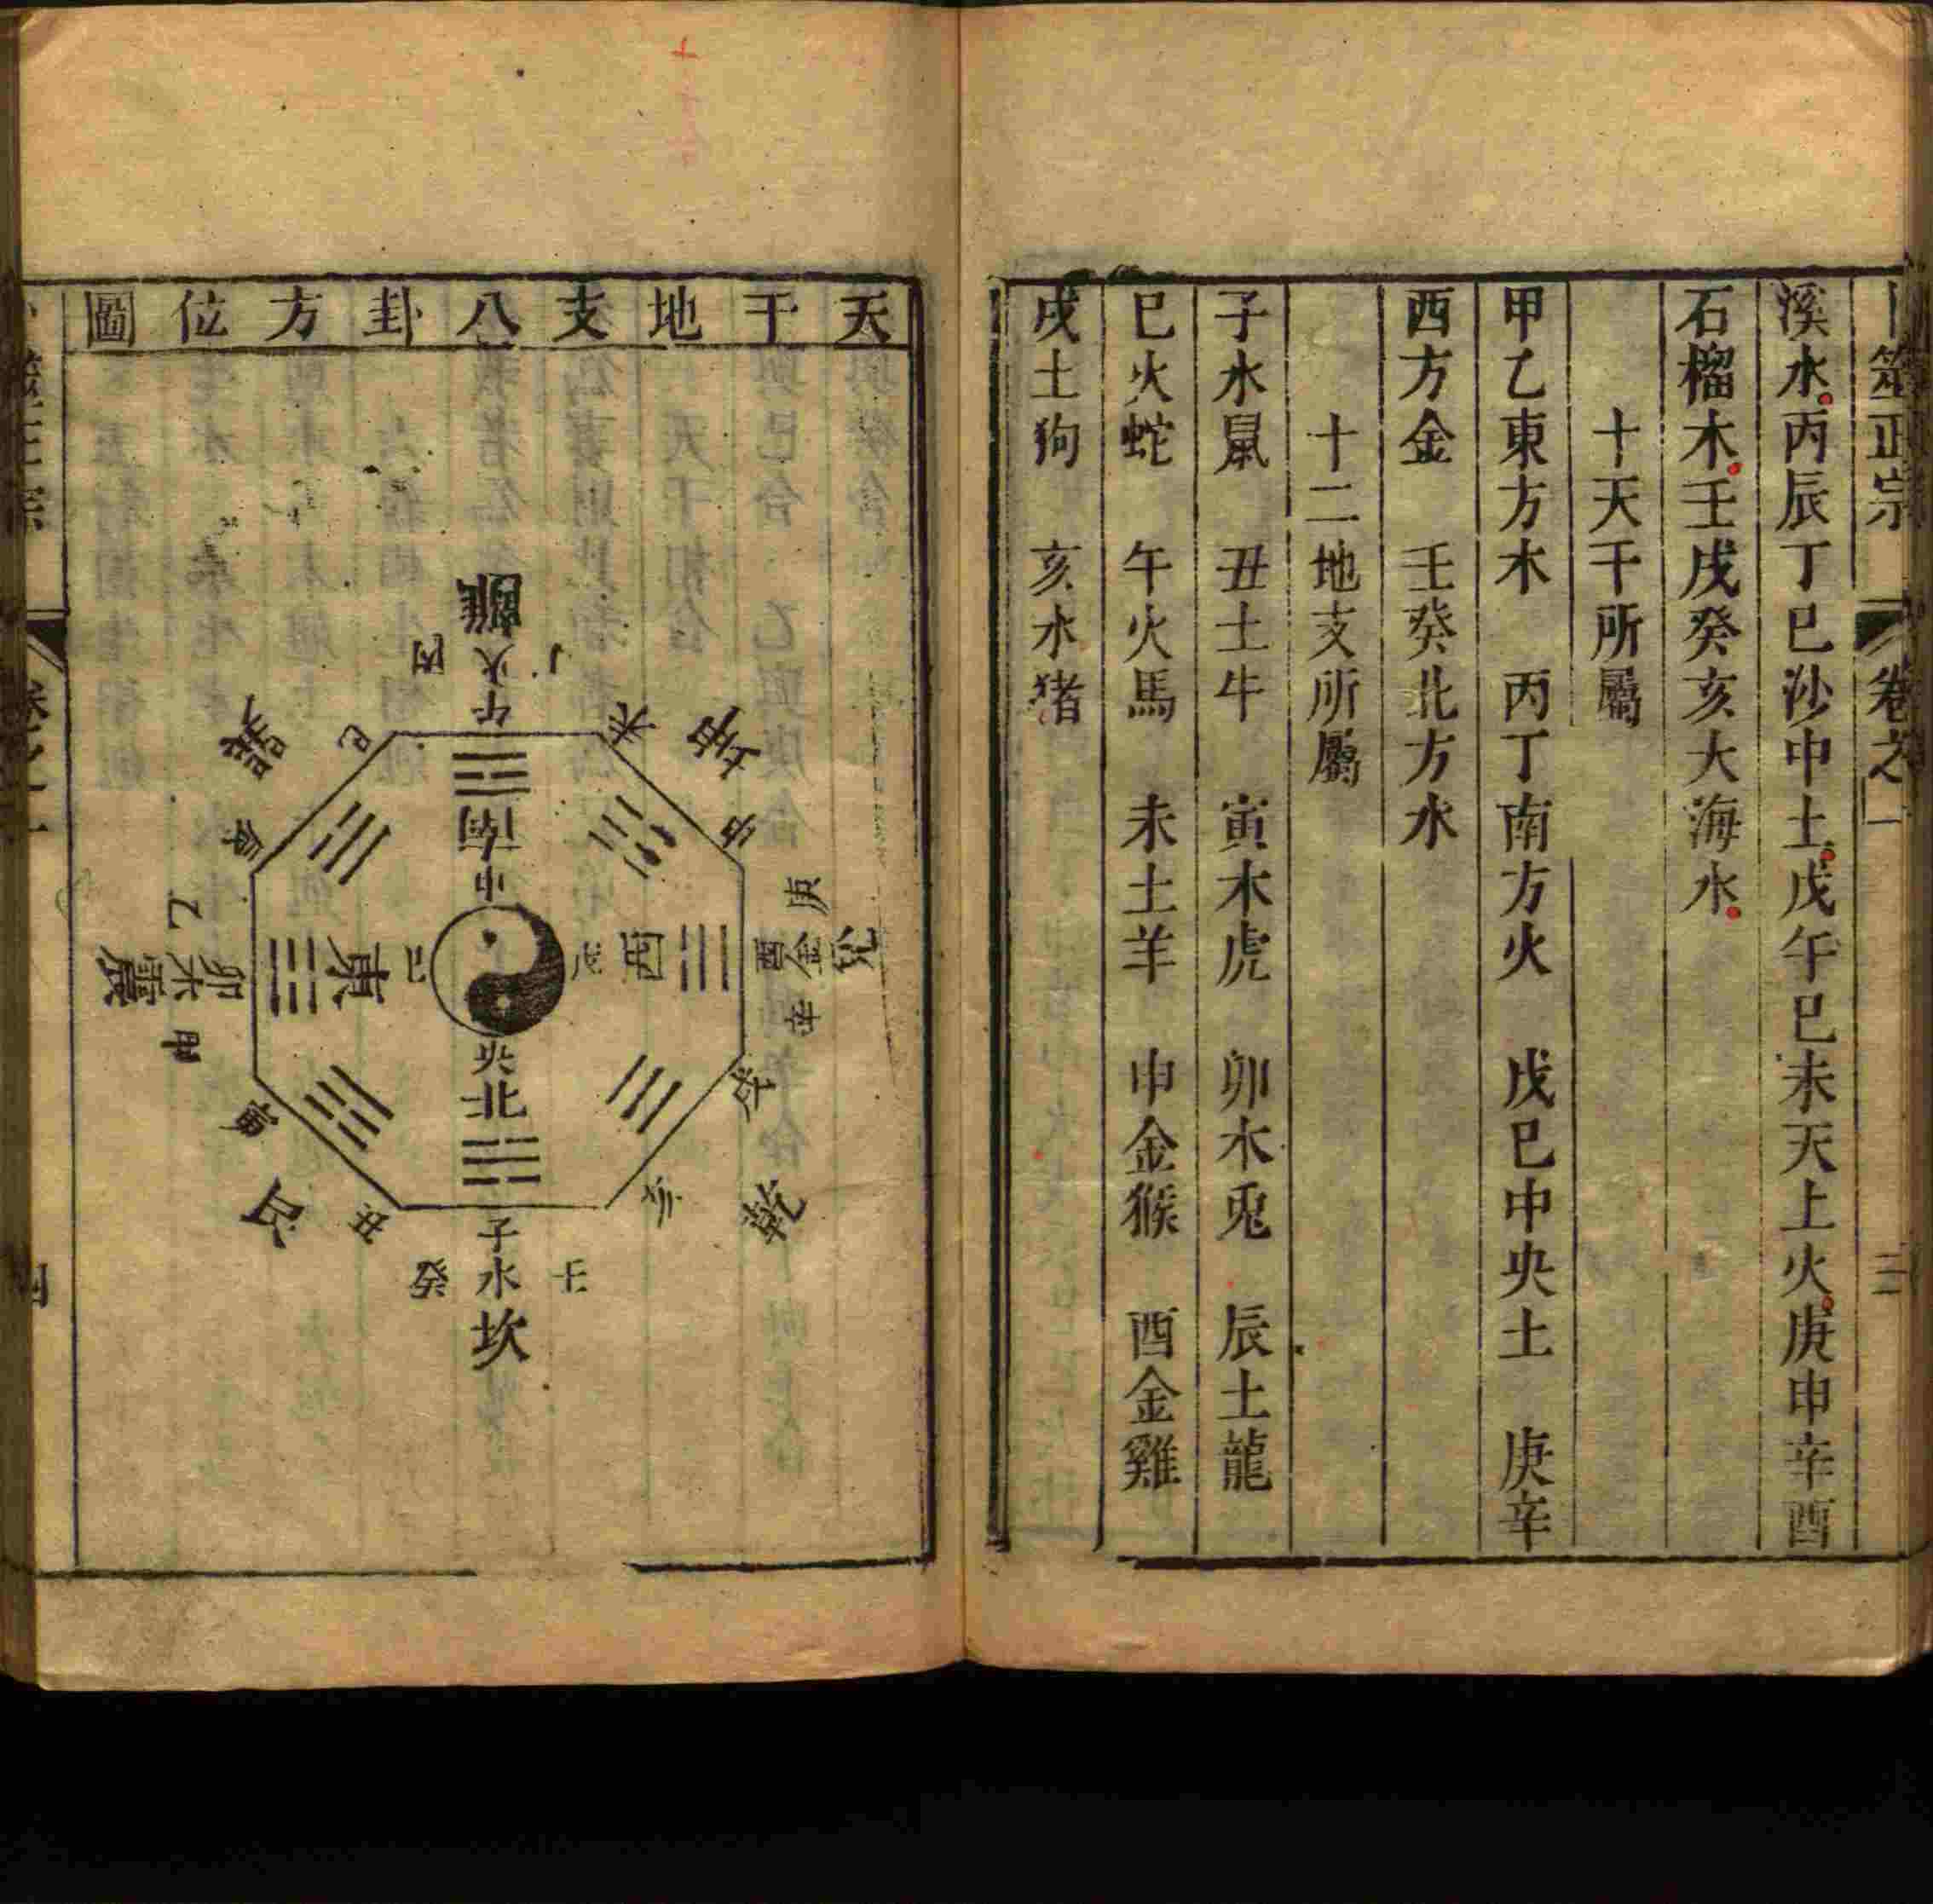 卜筮正宗 卷之一 三
溪水丙辰丁巳沙中土戊午巳未天上火庚申辛酉
石榴木壬戌癸亥大海水
十天干所屬
甲乙東方木 丙丁南方火 戊巳中央土 庚辛
西方金 壬癸北方水
十二地支所屬
子水鼠 丑土牛 寅木虎 卯木兎 辰土龍
巳火蛇 午火馬 未土羊 申金猴 酉金雞
戌土狗 亥水猪
天干地支八卦方位圖
離
火
丙 丁
午
南
中
巽
巳
辰
未
坤
申
乙
卯
木
震
甲
東
己
戊
西
庚
酉
金
兌
辛
央
北
寅
艮
丑
戌
亥
乾
子
水
坎
癸 壬
卷之一
四